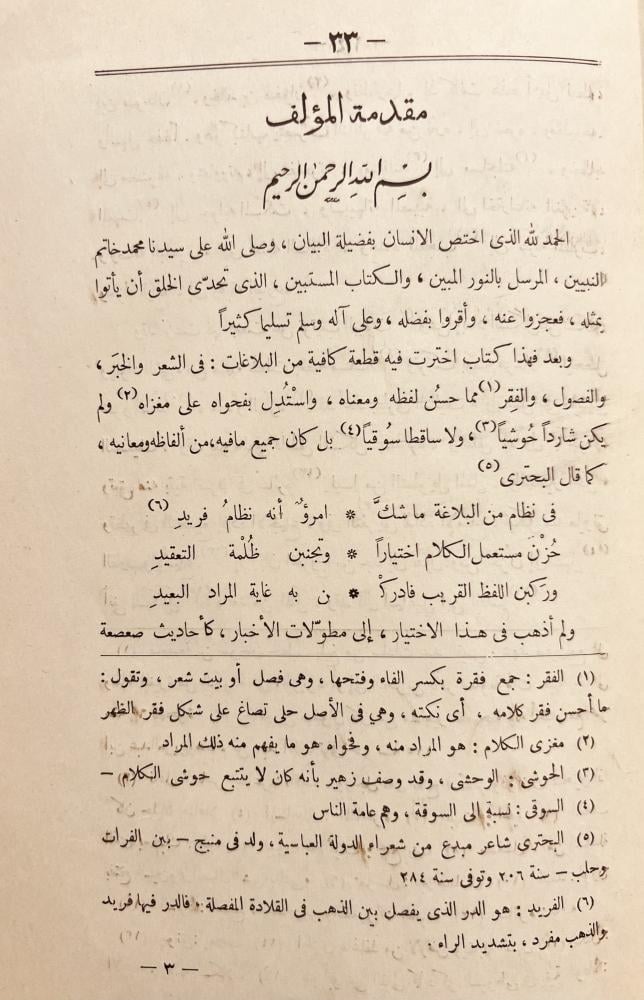 — ٣٣ —
مقدمة المؤلف
بسم الله الرحمن الرحيم
الحمد لله الذى اختص الانسان بفضيلة البيان ، وصلى الله على سيدنا محمد خاتم
النبيين ، المرسل بالنور المبين ، والكتاب المستبين ، الذى تحدّى الخلق أن يأتوا
بمثله ، فعجزوا عنه ، وأقروا بفضله ، وعلى آله وسلم تسليما كثيراً
وبعد فهذا كتاب اخترت فيه قطعة كافية من البلاغات : فى الشعر والخبَر ،
والفصول ، والفِقر(١) مما حسُن لفظه ومعناه ، واسْتُدِل بفحواه على مغزاه(٢) ولم
يكن شارداً حُوشياً(٣)، ولا ساقطا سُوقياً(٤) بل كان جميع مافيه،من ألفاظه ومعانيه ،
كما قال البحترى(٥)
فى نظام من البلاغة ما شكَّ * امرؤٌ أنه نظامُ فريدِ (٦)
حُزْنَ مستعمل الكلام اختياراً * وتجنبن ظُلْمة التعقيدِ
وركبن اللفظ القريب فادركْـ * ن به غاية المراد البعيدِ
ولم أذهب فى هذا الاختيار ، إلى مطوّلات الأخبار ، كأحاديث صعصعة
(١) الفقر : جمع فقرة بكسر الفاء وفتحها ، وهى فصل أو بيت شعر ، وتقول :
ما أحسن فقر كلامه ، أى نكته ، وهى فى الأصل حلى تصاغ على شكل فقر الظهر
(٢) مغزى الكلام : هو المراد منه ، وفحواه هو ما يفهم منه ذلك المراد
(٣) الحوشى : الوحشى ، وقد وصف زهير بأنه كان لا يتتبع حوشى الكلام —
(٤) السوقى : نسبة إلى السوقة ، وهم عامة الناس
(٥) البحترى شاعر مبدع من شعراء الدولة العباسية ، ولد فى منبج — بين الفرات
وحلب — سنة ٢٠٦ وتوفى سنة ٢٨٤
(٦) الفريد : هو الدر الذى يفصل بين الذهب فى القلادة المفصلة . فالدر فيها فريد
والذهب مفرد ، بتشديد الراء .
— ٣ —